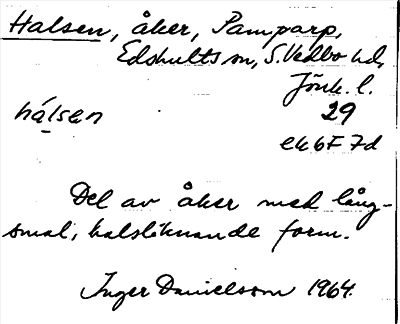 Halsen, åker, Pamparp,
Edshults sn, S. Vedbo hd,
Jönk. l.
hálsen 29
ek 6F 7d
Del av åker med lång-
smal, halsliknande form.
Inger Danielsson 1964.